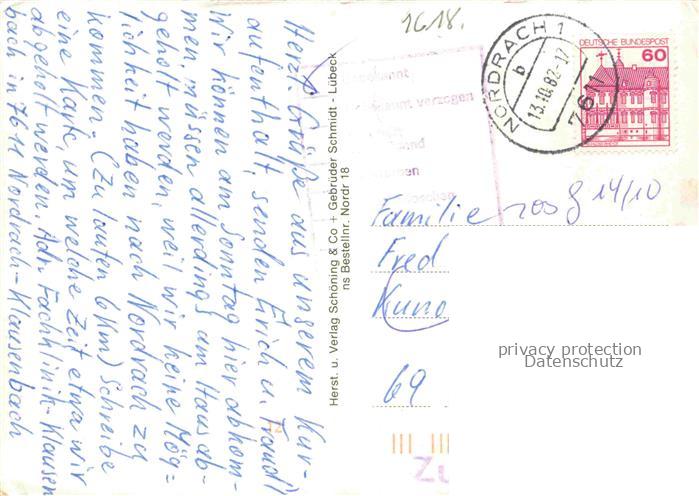 Herzl. Grüße aus unserem Kur-
aufenthalt, senden Erich u. Traudl
Wir können am Sonntag hier abkom-
men, müssen allerdings am Haus ab-
geholt werden, weil wir keine Mög-
lichkeit haben nach Nordrach zu
kommen. (Zu laufen 6 Km) Schreibe
eine Karte, um welche Zeit etwa wir
abgeholt werden. Adr. Fachklinik-Klausen
bach in 7611 Nordrach-Klausenbach
Herst. u. Verlag Schöning & Co + Gebrüder Schmidt - Lübeck
ns Bestellnr. Nordr 18
1618.
unbekannt
unbekannt verzogen
NORDRACH 1
b
13.10.82-17
7611
DEUTSCHE BUNDESPOST
60
Familie
14/10
Fred
Kuno
69
privacy protection
Datenschutz